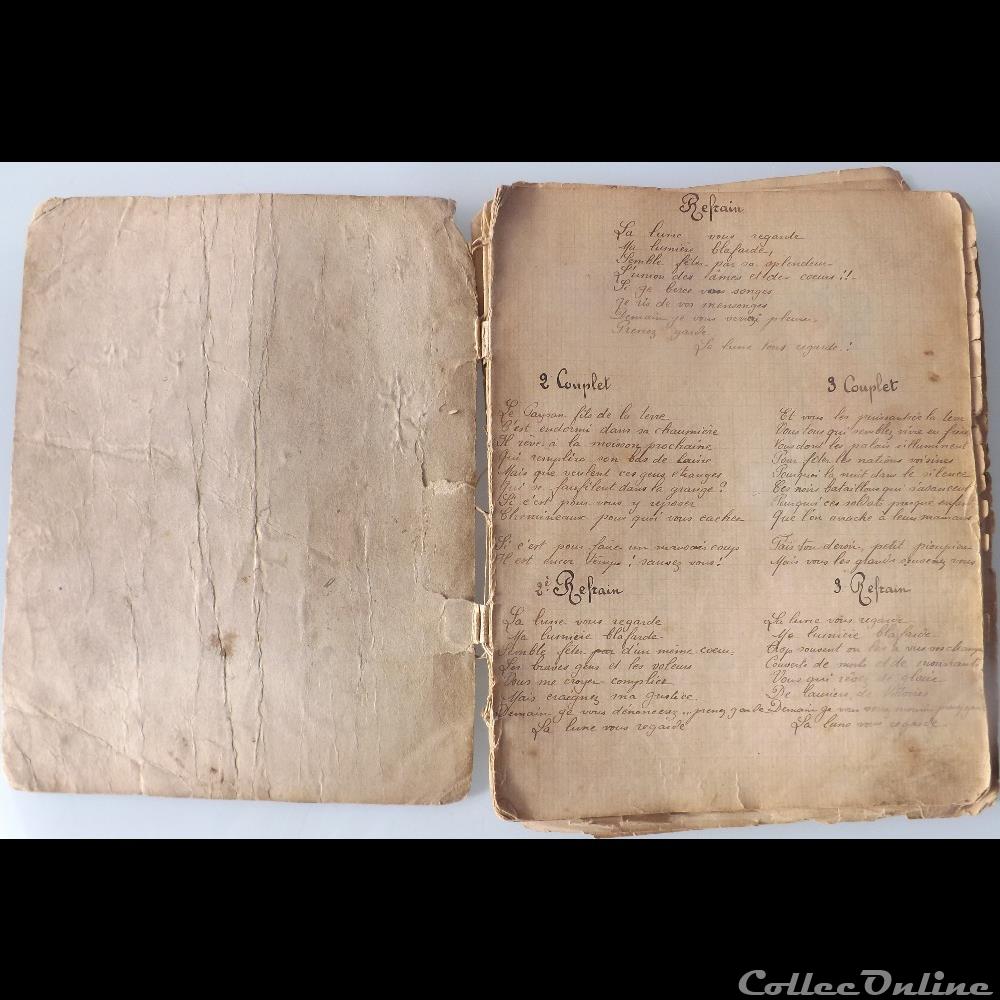 Refrain
La lune vous regarde
Ma lumière blafarde,
Semble fêter par sa splendeur
L'union des âmes et des coeurs !!
Si je berce vos songes
Je ris de vos mensonges
Demain je vous verrai pleurer
Prenez garde
La lune vous regarde !
2 Couplet
Le Paysan fils de la terre
S'est endormi dans sa chaumière
Il rêve à la moisson prochaine
Qui remplira son bas de laine
Mais que veulent ces gens étranges
Qui se faufilent dans la grange ?
Si c'est pour vous y reposer
Chemineaux pourquoi vous cacher
Si c'est pour faire un mauvais coup
Il est encor temps ! sauvez vous !
2è Refrain
La lune vous regarde
Ma lumière blafarde
Semble fêter par d'un même coeur
Les braves gens et les voleurs
Vous me croyez complice
Mais craignez ma justice
Demain je vous dénoncerez... prenez garde
La lune vous regarde
3 Couplet
Et vous les puissants de la terre
Vous tous qui semblez vivre en frères
Vous dont les palais s'illuminent
Pour fêter les nations voisines
Pourquoi la nuit dans le silence
Ces noirs bataillons qui s'avancent
Pourquoi ces soldats presque enfants
Que l'on arrache à leurs mamans
Fais ton devoir, petit pioupiou
Mais vous les grands souvenez vous
3 Refrain
La lune vous regarde
Ma lumière blafarde
Trop souvent on les a vus vos champs
Couverts de morts et de mourants
Vous qui rêvez de gloire
De lauriers, de Victoires
Demain je vous verrai mourir
La lune vous regarde
ColleeOnline